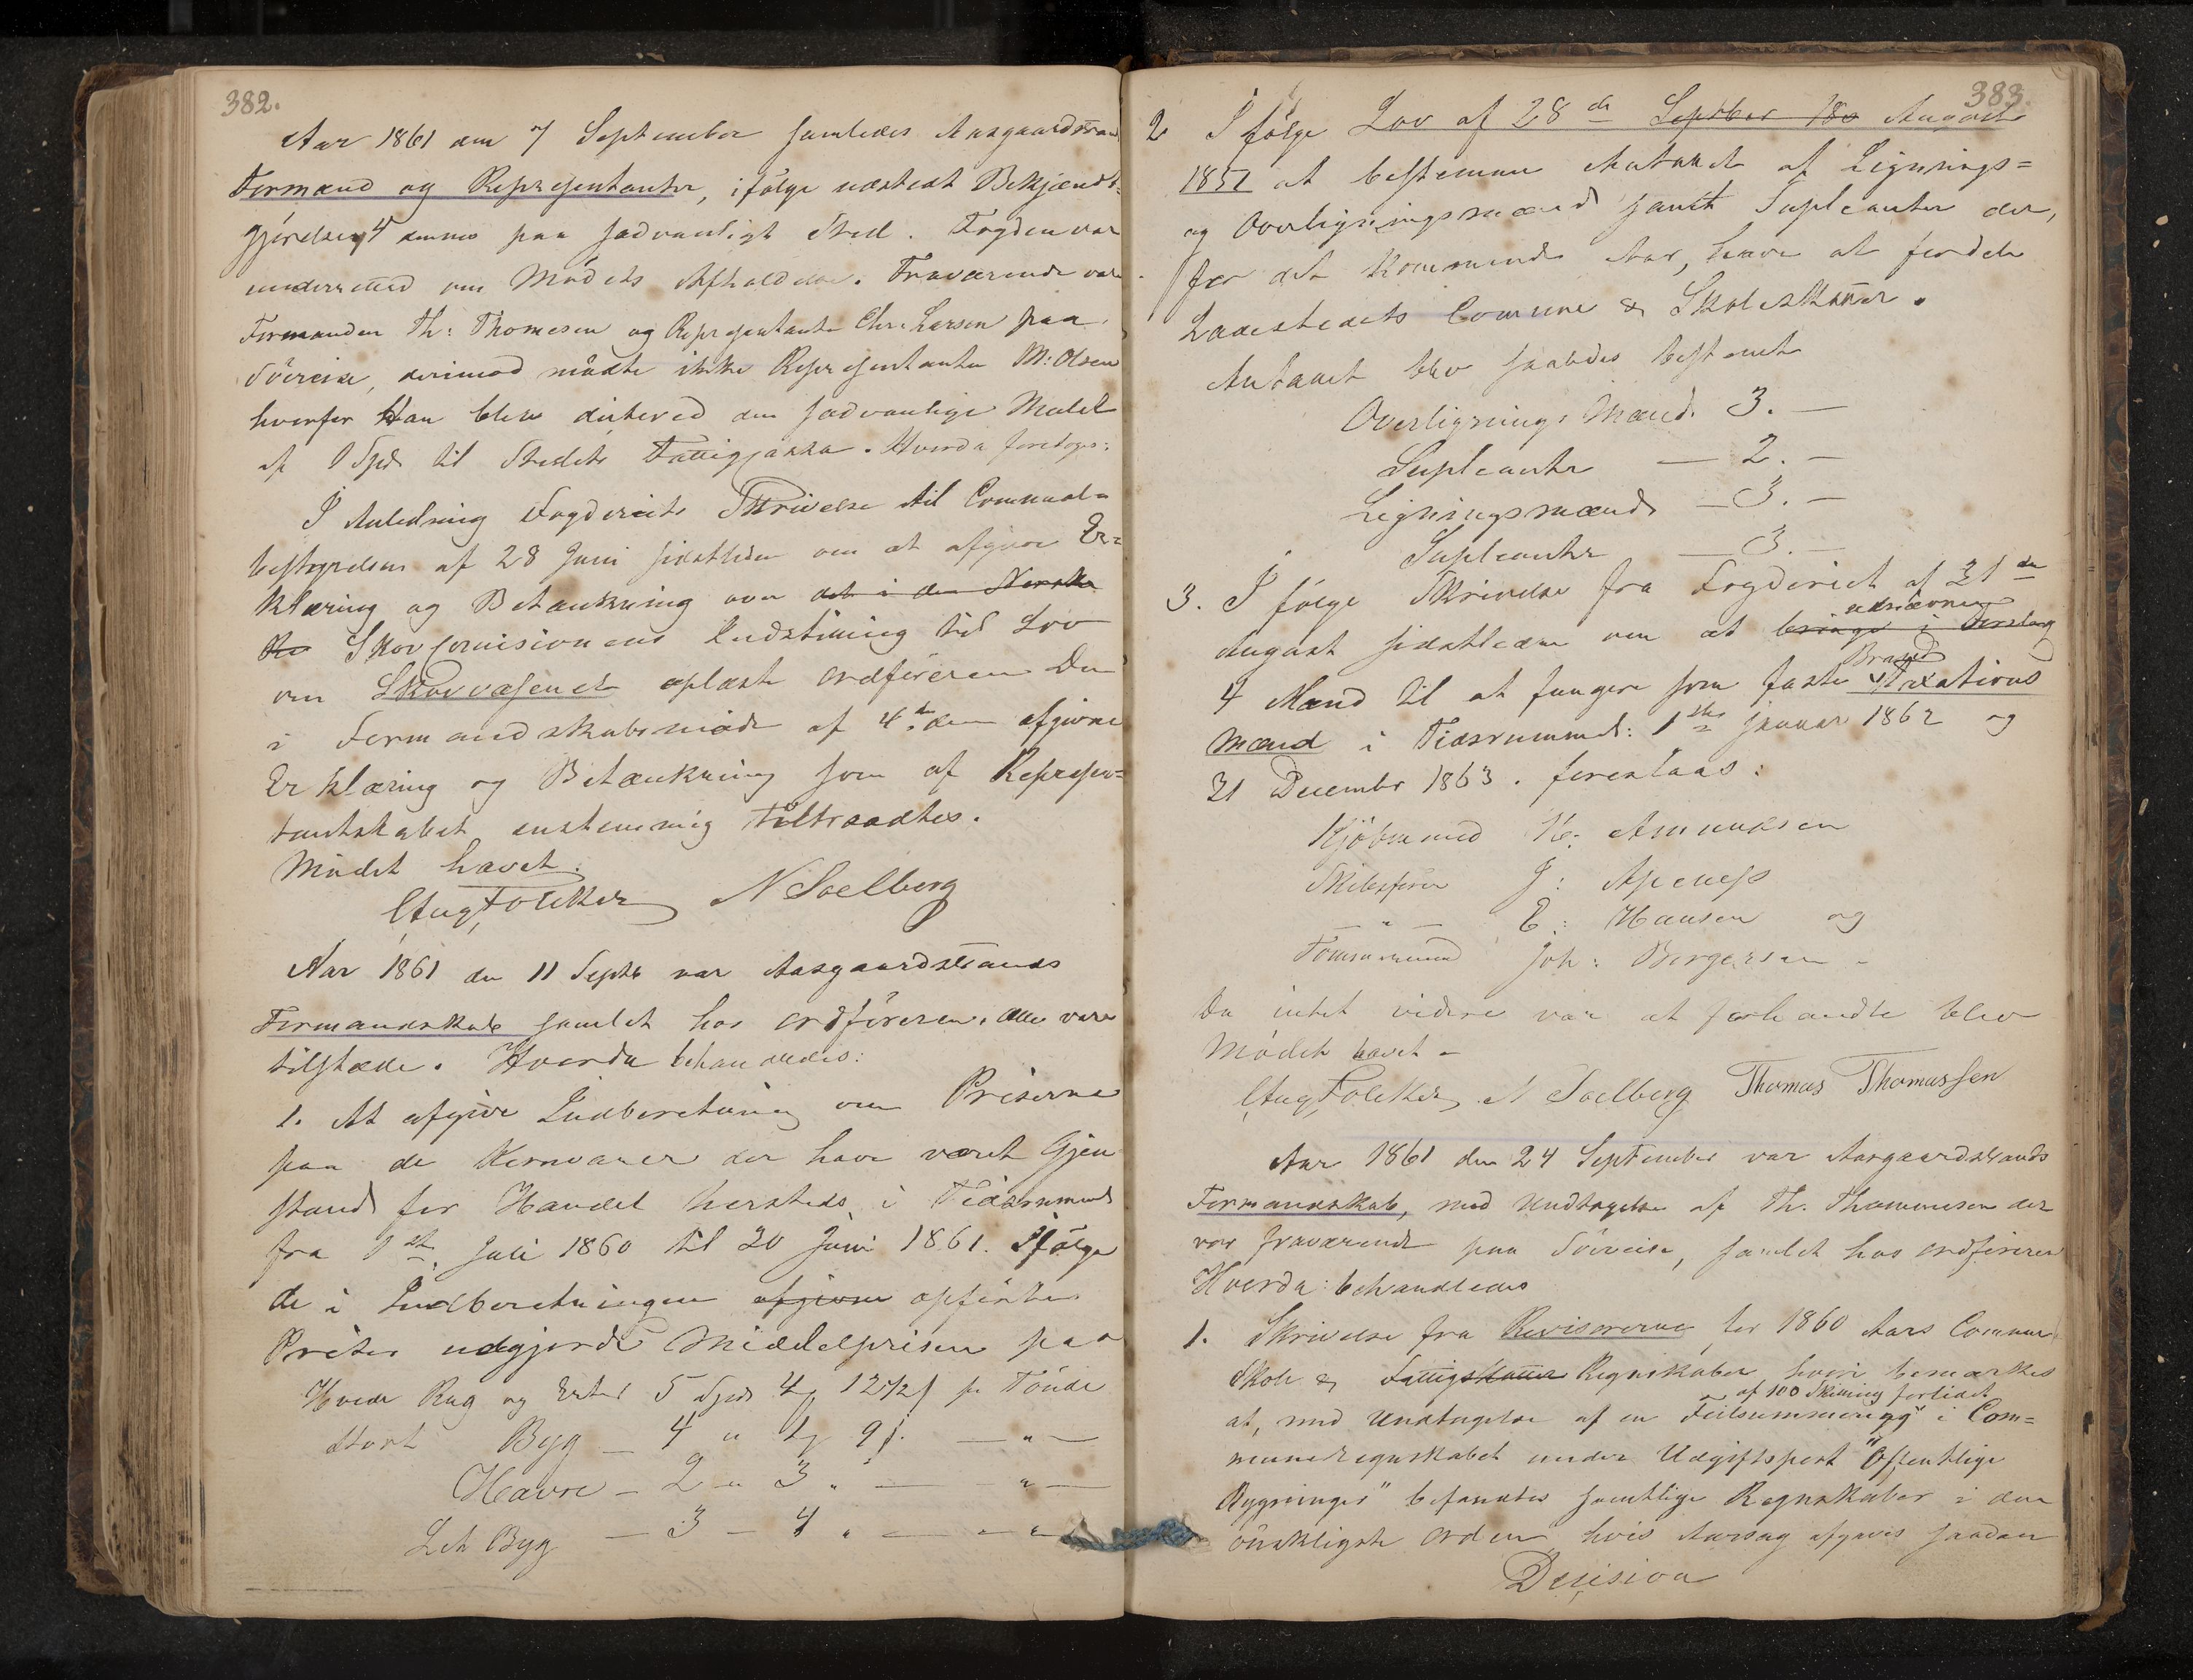 382.
Aar 1861 den 7 September samledes Aasgaardstran
Formænd og Repræsentanter, ifölge udstedt Bekjændt-
gjörelse 4 dennes paa sædvanligt Sted. Fogden var
underretted om Mödets Afholdelse. Fraværende var
Formanden Th: Thomesen og Repræsentante Chr. Larsen paa
Söreise, derimod mödte ikke Repræsentanten M: Olsen
hvorfor Han blev dictered den sædvanlige Mulct
af 1 Spd. til Stedets Fattigkassa. Hvorda foretoges:
I Anledning Fogderiets Skrivelse til Communal-
bestyrelsen af 28 Juni sidstleden om at afgive Er-
klæring og Betænkning over det i den Norske
Skovcomisionens Indstilling til Lov
om Skovvæsenet oplæste Ordföreren Den
i Formandskabsmöde af 4de dennes afgivne
Erklæring og Betænkning som af Repræsen-
tantskabet enstemmig tiltraadtes.
Mödet hævet.
Aug. Fölcker N Soelberg
Aar 1861 den 11 Septb var Aasgaardstrands
Formandskab samlet hos Ordföreren. Alle vare
tilstæde. Hvorda behandledes:
1. At afgive Indberetning om Priserne
paa de Kornvarer der have været Gjen
stand for Handel hersteds i Tidsrummet
fra 1ste Juli 1860 til 30 Juni 1861. Ifölge
de i Indberetningen afgivne opförte
Priser udgjorde Middelprisen paa
Hvede Rug og Erter 5 Spd 4 12½ s pr Tönde
Stort Byg — 4 " 9 s. — " —
Havre — 2 " 3 " — " —
Let Byg — 3 — 4 " — " —
383.
2 I fölge Lov af 28de Septber 180 August
1857 at bestemme Antallet af Lignings=
og Overligningsmænd samt Supleanter der,
for det kommende Aar, have at fordele
Ladestedets Comune & Skoleskatter.
Antallet blev saaledes bestemt
Overlignings Mænd 3. —
Supleanter — 2. —
Ligningsmænd — 3. —
Supleanter — 3. —
3. I fölge Skrivelse fra Fogderiet af 31de
August sidstleden om at bringe i Forslag
udnævne
4 Mænd til at fungere som faste Taxations
Brand
mænd i Tidsrummet: 1ste Januar 1862 og
31 December 1863. foreslaaes:
Kjöbmand K: Amundsen
Skibsförer J: Apeness
— " — E: Hansen og
Tömmermand Joh: Borgersen —
Da intet videre var at forhandle blev
Mödet hævet —
Aug. Fölcker N Soelberg Thomas Thomassen
Aar 1861 den 24 September var Aasgaardstrands
Formandskab, med Undtagelse af Th. Thommesen der
var fraværende paa Söreise, samlet hos Ordföreren
Hvorda: behandledes
1. Skrivelse fra Revisorerne for 1860 Aars Commune
Skole & Fattigskatter Regnskaber hvori bemærkes
af 100 Skilling fortidet
at, med Undtagelse af en Feilsummering i Com=
muneregnskabet under Udgiftspost "Offentlige
Bygninger" befandtes samtlige Regnskaber i den
önskligste Orden, hvis Aarsag afgaves saadan
Decision